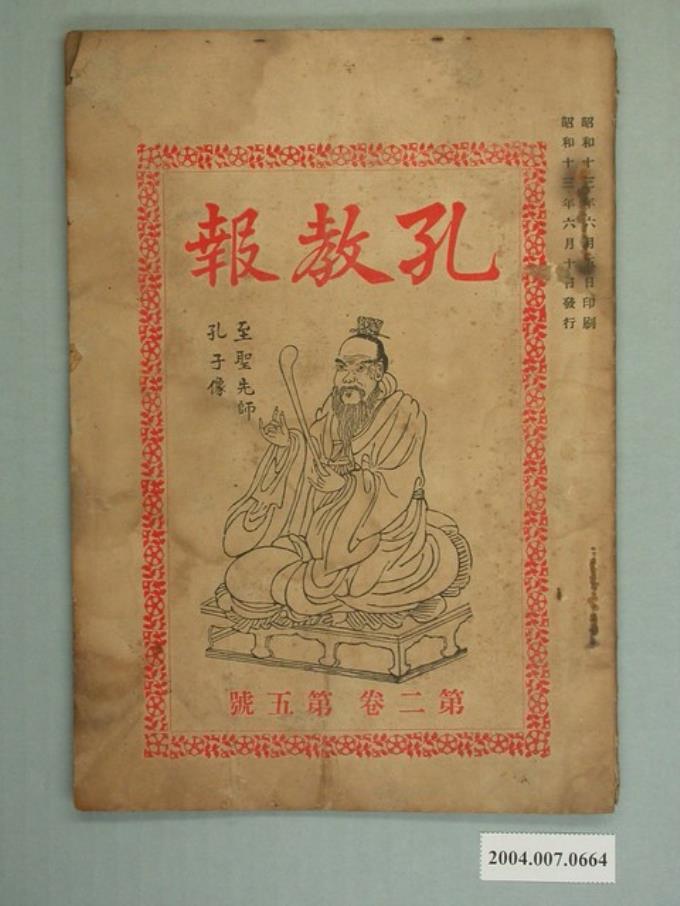 昭和十三年六月五日印刷
昭和十三年六月十日發行
孔教報
至聖先師
孔子像
第二卷 第五號
2004.007.0664